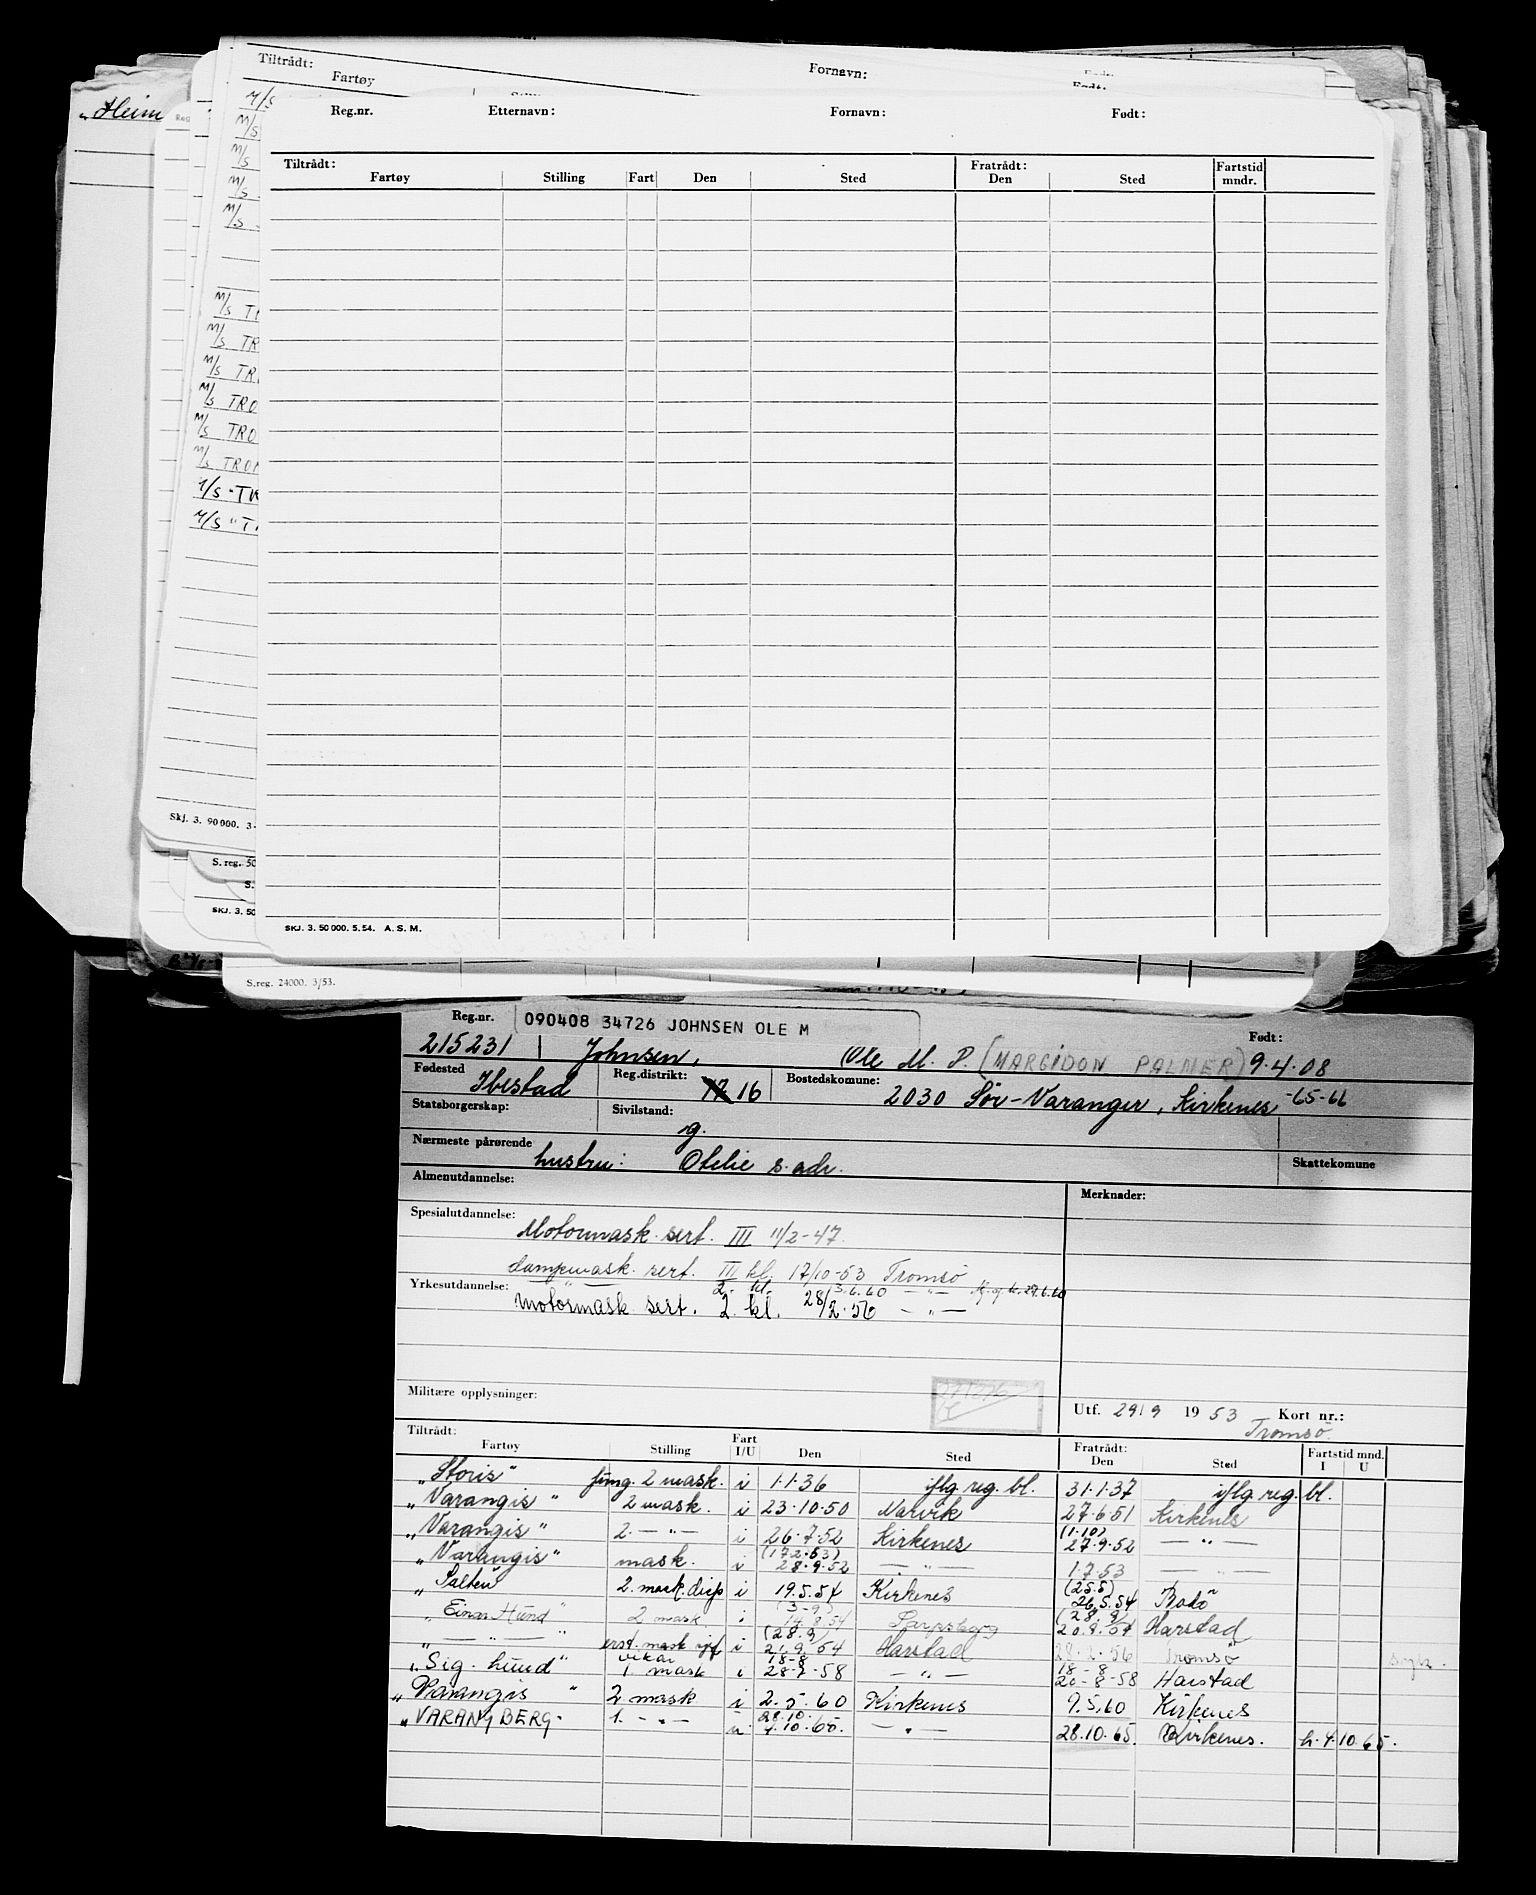 Tiltrådt: Fornavn:
Fartøy
"Heim
M/S
M/S
M/S
M/S
M/S
Reg.nr. Etternavn: Fornavn: Født:
Tiltrådt: Fratrådt: Fartstid
Fartøy Stilling Fart Den Sted Den Sted mndr.
M/S
M/S TR
M/S TR
M/S TRO
M/S TRO
M/S TROM
M/S "TR
M/S "T
Skj. 3. 90000. 3-
S. reg. 50
S.
SKJ. 3. 50
SKJ. 3. 50 000. 5. 54. A. S. M.
S.reg. 24000. 3/53.
Reg.nr. 090408 34726 JOHNSEN OLE M Født:
215231 Johnsen, Ole M. P. (MARGIDON PALMER) 9.4.08
Fødested Ibestad Reg.distrikt: 16 Bostedskomune: 2030 Sør-Varanger, Kirkenes -65-66
Statsborgerskap: Sivilstand: g.
Nærmeste pårørende hustru: Otelie s. adr. Skattekomune
Almenutdannelse: Merknader:
Spesialutdannelse: Motormask. sert. III 11/2-47.
Dampmask. sert. III kl. 17/10-53 Tromsø
Yrkesutdannelse: 2. kl. 3.6.60 — " —
Motormask. sert. 2. kl. 28/2.56 — " —
Militære opplysninger:
Utf. 29/9 1953 Kort nr.:
Tromsø
Tiltrådt: Fart Fratrådt: Fartstid mnd.
Fartøy Stilling I/U Den Sted Den Sted I U
"Storis" fung. 2 mask. i 1.1.36 iflg. reg. bl. 31.1.37 iflg. reg. bl.
"Varangis" 2 mask. i 23.10.50 Narvik 27.6.51 Kirkenes
"Varangis" 2. — " — i 26.7.52 Kirkenes (1.10) 27.9.52 — " —
"Varangis" mask. i (17.2.53) 28.9.52 — " — 1.7.53 — " —
"Salten 2. mask. disp i 19.5.54 Kirkenes (25.5) 26.5.54 Bodø
"Einar Hund" 2 mask i (3-9) 14.8.54 Sarpsborg (28.9) 20.9.54 Harstad
" — " — " i (28.9) 21.9.54 Harstad 28.2.56 Tromsø
"Sig. hund" vikar 1. mask i 18-8 28-7-58 — " — 18-8 20-8-58 Harstad
"Varangis" 2 mask i 2.5.60 Kirkenes 9.5.60 Kirkenes
"VARANGBERG" 1. — " — u 28.10. 4.10.65. — " — 28.10.65. Kirkenes. h.4.10.65.